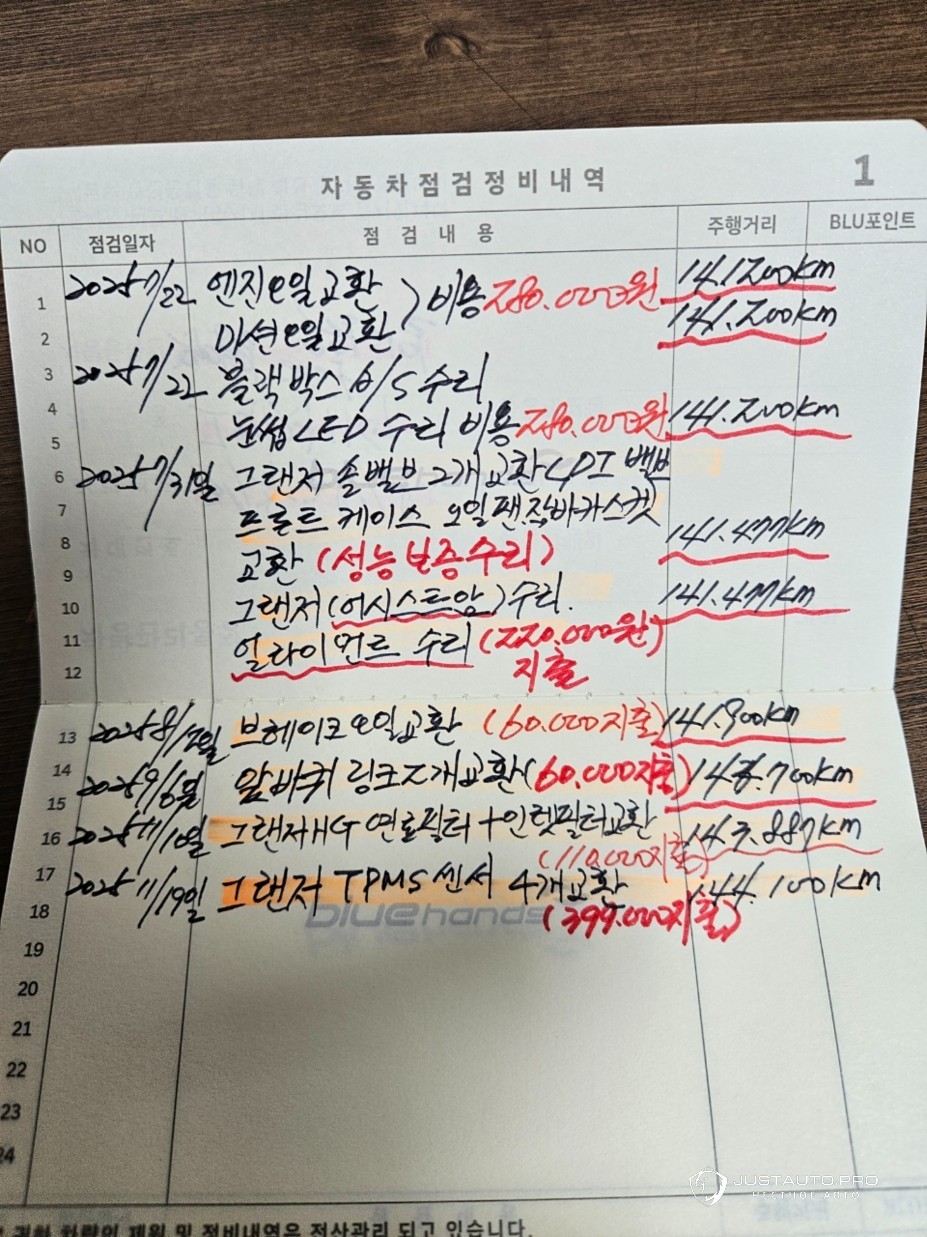 자동차점검정비내역 1
NO 점검일자 점검내용 주행거리 BLU포인트
1 2025 7/22 엔진오일교환 ) 비용 280.000원 141.200km
2 미션오일교환 141.200km
3 2025 7/22 블랙박스 A/S 수리
4 눈썹 LED 수리 비용 280.000원 141.200km
5
6 2025 7/31일 그랜저 솔밸브 2개교환 LPI 밸브
7 프론트 케이스 오일팬 카스켓
8 교환 (성능보증수리) 141.477km
9
10 그랜저 (어시스트암) 수리. 141.477km
11 얼라이먼트 수리 (220.000원)
12 지출
13 2025 8/ 브레이크오일교환 (60.000지출) 141.900km
14 2025 9/6일 앞바퀴 링크 2개교환 (60.000지출) 700km
15
16 2025 11/10일 그랜저HG 연료필터 + 인렛필터교환 143.887km
(110.000지출)
17 2025 11/19일 그랜저 TPMS 센서 4개교환 144.100km
18 bluehands (399.000지출)
19
20
21
22
23
24
귀하 차량의 제원 및 정비내역은 전산관리 되고 있습니다.
JUSTAUTO PRO